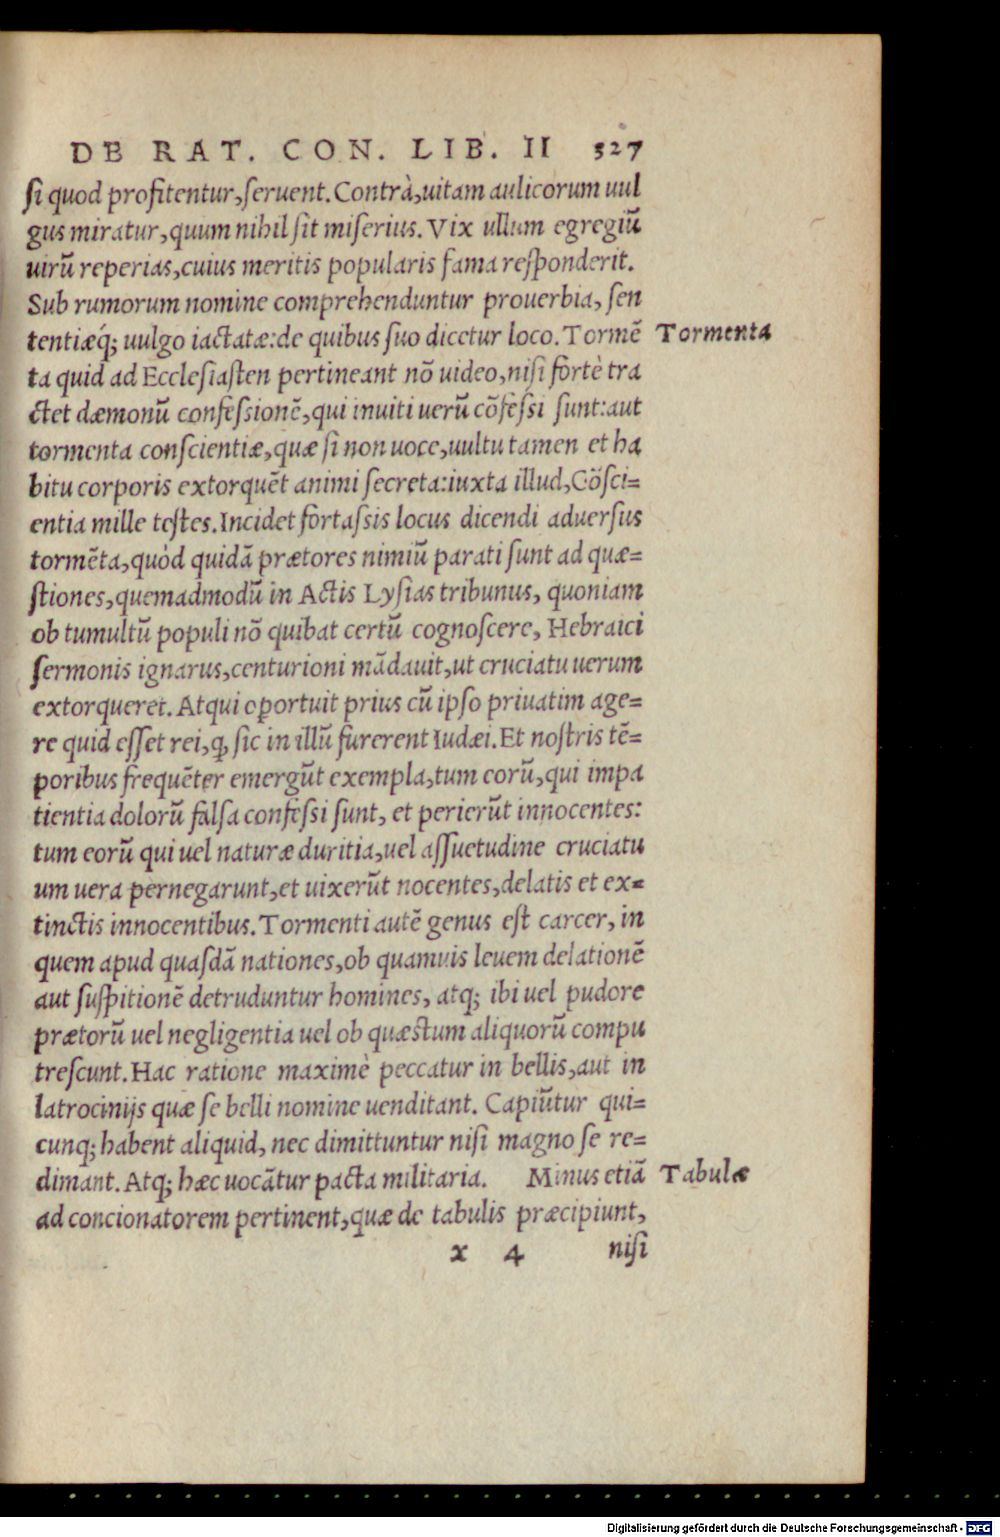 DE RAT. CON. LIB. II 327
ſi quod profitentur, ſeruent. Contrà, uitam aulicorum uul
gus miratur, quum nihil ſit miſerius. Vix ullum egregiũ
uirũ reperias, cuius meritis popularis fama reſponderit.
Sub rumorum nomine comprehenduntur prouerbia, ſen
tentiæq́; uulgo iactatæ: de quibus ſuo dicetur loco. Tormẽ Tormenta
ta quid ad Eccleſiaſten pertineant nõ uideo, niſi fortè tra
ctet dæmonũ confeſsionẽ, qui inuiti uerũ cõfeſsi ſunt: aut
tormenta conſcientiæ, quæ ſi non uoce, uultu tamen et ha
bitu corporis extorquẽt animi ſecreta: iuxta illud, Cõſci=
entia mille teſtes. Incidet fortaſsis locus dicendi aduerſus
tormẽta, quòd quidã prætores nimiũ parati ſunt ad quæ=
ſtiones, quemadmodũ in Actis Lyſias tribunus, quoniam
ob tumultũ populi nõ quibat certũ cognoſcere, Hebraici
ſermonis ignarus, centurioni mãdauit, ut cruciatu uerum
extorqueret. Atqui oportuit prius cũ ipſo priuatim age=
re quid eſſet rei, ꝙ ſic in illũ furerent Iudæi. Et noſtris tẽ=
poribus frequẽter emergũt exempla, tum eorũ, qui impa
tientia dolorũ falſa confeſsi ſunt, et perierũt innocentes:
tum eorũ qui uel naturæ duritia, uel aſſuetudine cruciatu
um uera pernegarunt, et uixerũt nocentes, delatis et ex=
tinctis innocentibus. Tormenti autẽ genus eſt carcer, in
quem apud quaſdã nationes, ob quamuis leuem delationẽ
aut ſuſpitionẽ detruduntur homines, atq; ibi uel pudore
prætorũ uel negligentia uel ob quæſtum aliquorũ compu
treſcunt. Hac ratione maximè peccatur in bellis, aut in
latrocinijs quæ ſe belli nomine uenditant. Capiũtur qui=
cunq; habent aliquid, nec dimittuntur niſi magno ſe re=
dimant. Atq; hæc uocãtur pacta militaria. Minus etiã Tabulæ
ad concionatorem pertinent, quæ de tabulis præcipiunt,
x 4 niſi
Digitalisierung gefördert durch die Deutsche Forschungsgemeinschaft - DFG